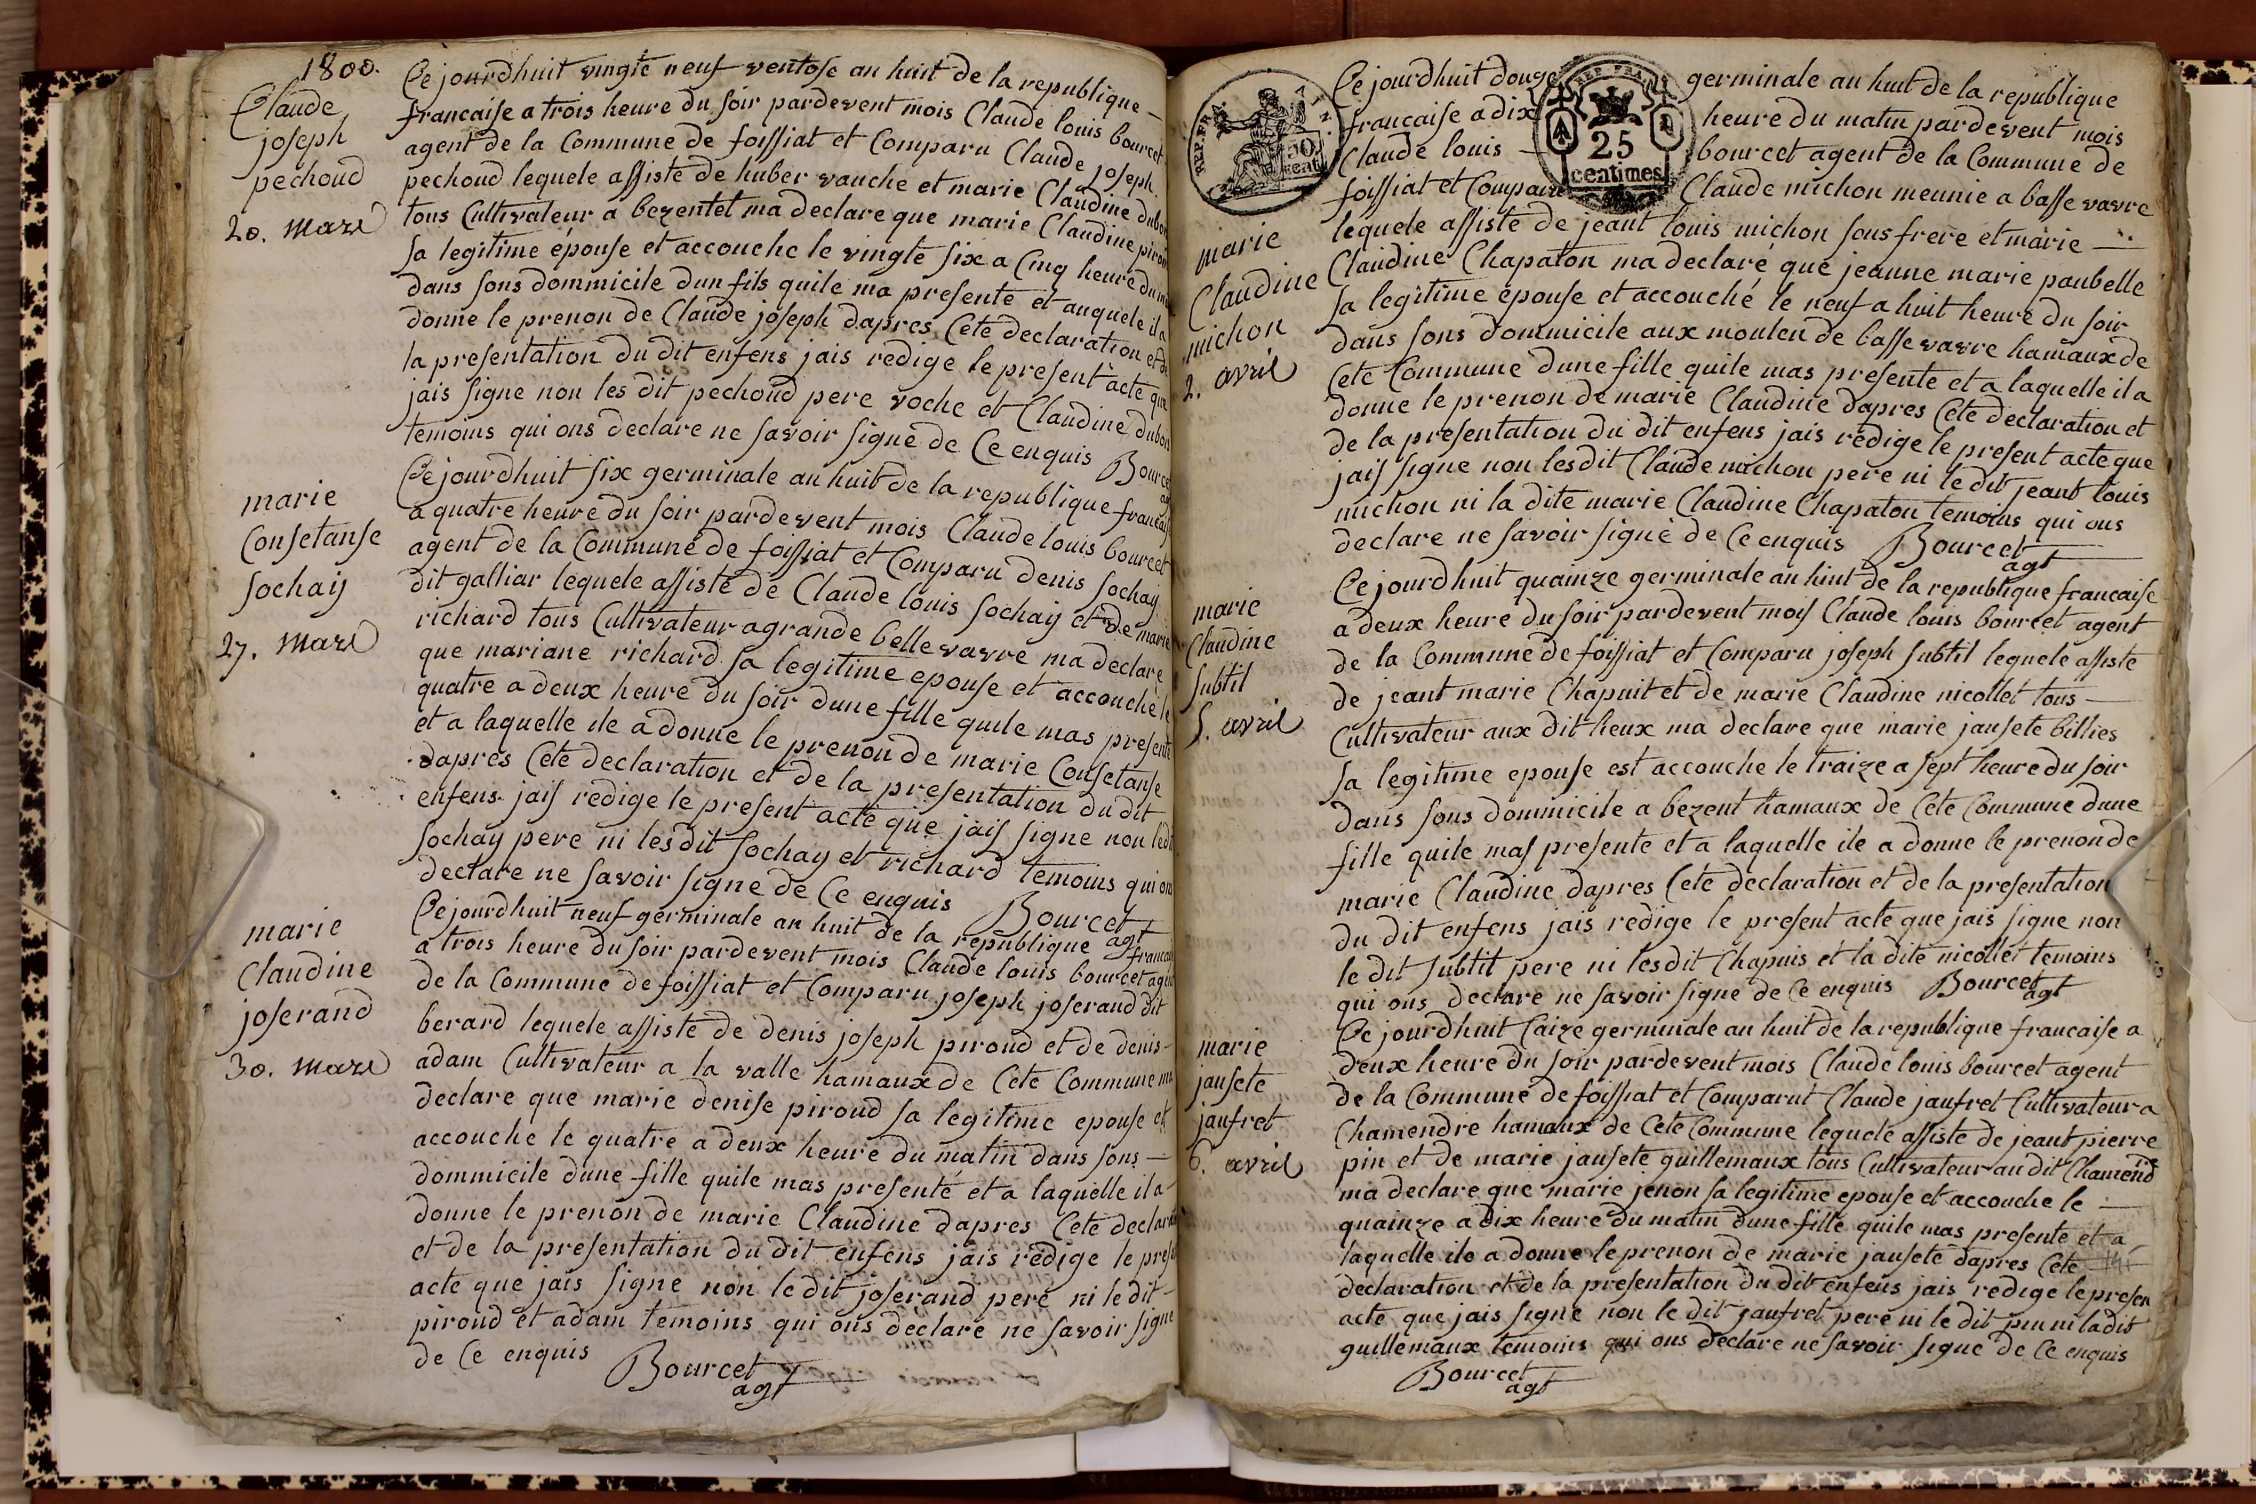 1800.
Claude
joseph
pechoud
20. Mars
Ce jourdhuit vingte neuf ventose an huit de la republique
francaise a trois heure du soir pardevent mois Claude louis bourcet
agent de la Commune de foissiat et Comparu Claude joseph
pechoud lequele assiste de huber vauche et marie Claudine dubo
tous Cultivateur a bezentet ma declare que marie Claudine piro
sa legitime épouse et accouche le vingte six a Cinq heure du
dans sons dommicile dun fils quile ma presente et auquele il a
donne le prenon de Claude joseph dapres Cete declaration et de
la presentation du dit enfens jais redige le present acte que
jais signe non les dit pechoud pere voche et Claudine dubo
temoins qui ons declare ne savoir signe de Ce enquis Bource
marie
Consetanse
sochaij
27. Mars
Ce jourdhuit six germinale an huit de la republique francais
a quatre heure du soir pardevent mois Claude louis bourcet
agent de la Commune de foissiat et Comparu denis sochay
dit galliar lequele assiste de Claude louis sochaij et de marie
richard tous Cultivateur a grande belle vavre ma declare
que mariane richard sa legitime epouse et accouche le
quatre a deux heure du soir dune fille quile mas presente
et a laquelle ile a donne le prenon de marie Consetanse
dapres Cete declaration et de la presentation du dit
enfens jais redige le present acte que jais signe non ledit
sochay pere ni les dit sochay et richard temoins qui ons
declare ne savoir signe de Ce enquis Bourcet
agt
marie
Claudine
joserand
30. Mars
Ce jourdhuit neuf germinale an huit de la republique francai
a trois heure du soir pardevent mois Claude louis bourcet agen
de la Commune de foissiat et Comparu joseph joserand dit
berard lequele assiste de denis joseph piroud et de denis
adam Cultivateur a la valle hamaux de Cete Commune ma
declare que marie denise piroud sa legitime epouse et
accouche le quatre a deux heure du matin dans sons
dommicile dune fille quile mas presenté et a laquelle il a
donne le prenon de marie Claudine dapres Cete declara
et de la presentation du dit enfens jais redige le pres
acte que jais signe non le dit joserand pere ni le dit
piroud et adam temoins qui ons declare ne savoir signe
de Ce enquis Bourcet
agt
REP. FRA.
50
cent.
REP. FRA.
25
centimes
marie
Claudine
michon
2. avril
Ce jourdhuit douze germinale an huit de la republique
francaise a dix heure du matin pardevent mois
Claude louis bourcet agent de la Commune de
foissiat et Comparu Claude michon meunie a basse vavre
lequele assiste de jeant louis michon sons frere et marie
Claudine Chapaton ma declaré que jeanne marie paubelle
sa legitime epouse et accouché le neuf a huit heure du soir
dans sons dommicile aux moulen de basse vavre hamaux de
Cete Commune dune fille quile mas presente et a laquelle il a
donne le prenon de marie Claudine dapres Cete declaration et
de la presentation du dit enfens jais redige le present acte que
jais signe non les dit Claude michon pere ni le dit jeant louis
michon ni la dite marie Claudine Chapaton temoins qui ons
declare ne savoir signé de Ce enquis Bourcet
agt
marie
Claudine
subtil
5. avril
Ce jourdhuit quainze germinale an huit de la republique francaise
a deux heure du soir pardevent mois Claude louis bourcet agent
de la Commune de foissiat et Comparu joseph subtil lequele assiste
de jeant marie Chapuit et de marie Claudine nicollet tous
Cultivateur aux dit lieux ma declare que marie jansete billies
sa legitime epouse est accouche le traize a sept heure du soir
dans sons dommicile a bezent hamaux de Cete Commune dune
fille quile mas presente et a laquelle ile a donne le prenon de
marie Claudine dapres Cete declaration et de la presentation
du dit enfens jais redige le present acte que jais signe non
le dit subtil pere ni les dit Chapuis et la dite nicollet temoins
qui ons declare ne savoir signe de Ce enquis Bourcet
agt
marie
jansete
jaufret
6. avril
Ce jourdhuit Saize germinale an huit de la republique francaise a
deux heure du soir pardevent mois Claude louis bourcet agent
de la Commune de foissiat et Comparut Claude jaufret Cultivateur a
Chamendre hamaux de Cete Commune lequele assiste de jeant pierre
pin et de marie jansete guillemaux tous Cultivateur au dit Chamendre
ma declare que marie jenon sa legitime epouse et accouche le
quainze a dix heure du matin dune fille quile mas presente et a
laquelle ile a donne le prenon de marie jansete dapres Cete
declaration et de la presentation du dit enfens jais redige le presen
acte que jais signe non le dit jaufret pere ni le dit pin ni la dit
guillemaux temoins qui ons declare ne savoir signe de Ce enquis
Bourcet
agt